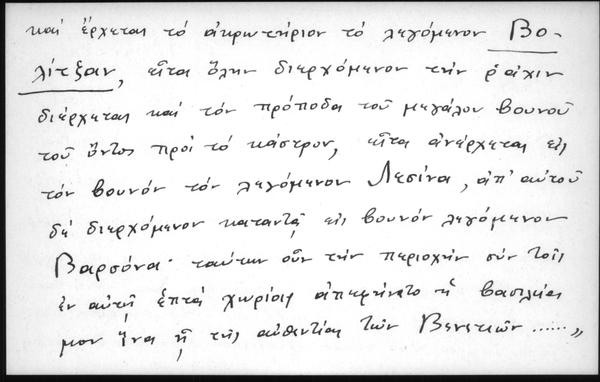 καί ἔρχεται τό ἀκρωτήριον τό λεγόμενον Βο-
λίτζαν, εἶτα ὅλην διερχόμενον τήν ῥάχιν
διέρχεται καί τόν πρόποδα τοῦ μεγάλου βουνοῦ
τοῦ ὄντος πρός τό κάστρον, εἶτα ἀνέρχεται εἰς
τόν βουνόν τόν λεγόμενον Λεσίνα, ἀπ' αὐτοῦ
δέ διερχόμενον καταντᾷ εἰς βουνόν λεγόμενον
Βαρσόνα· ταύτην οὖν τήν περιοχήν σύν τοῖς
ἐν αὐτῇ ἑπτά χωρίοις ἀπεκρίνατο ἡ βασιλεία
μου ἵνα ᾖ τῆς αὐθεντίας τῶν Βενετιῶν ......»